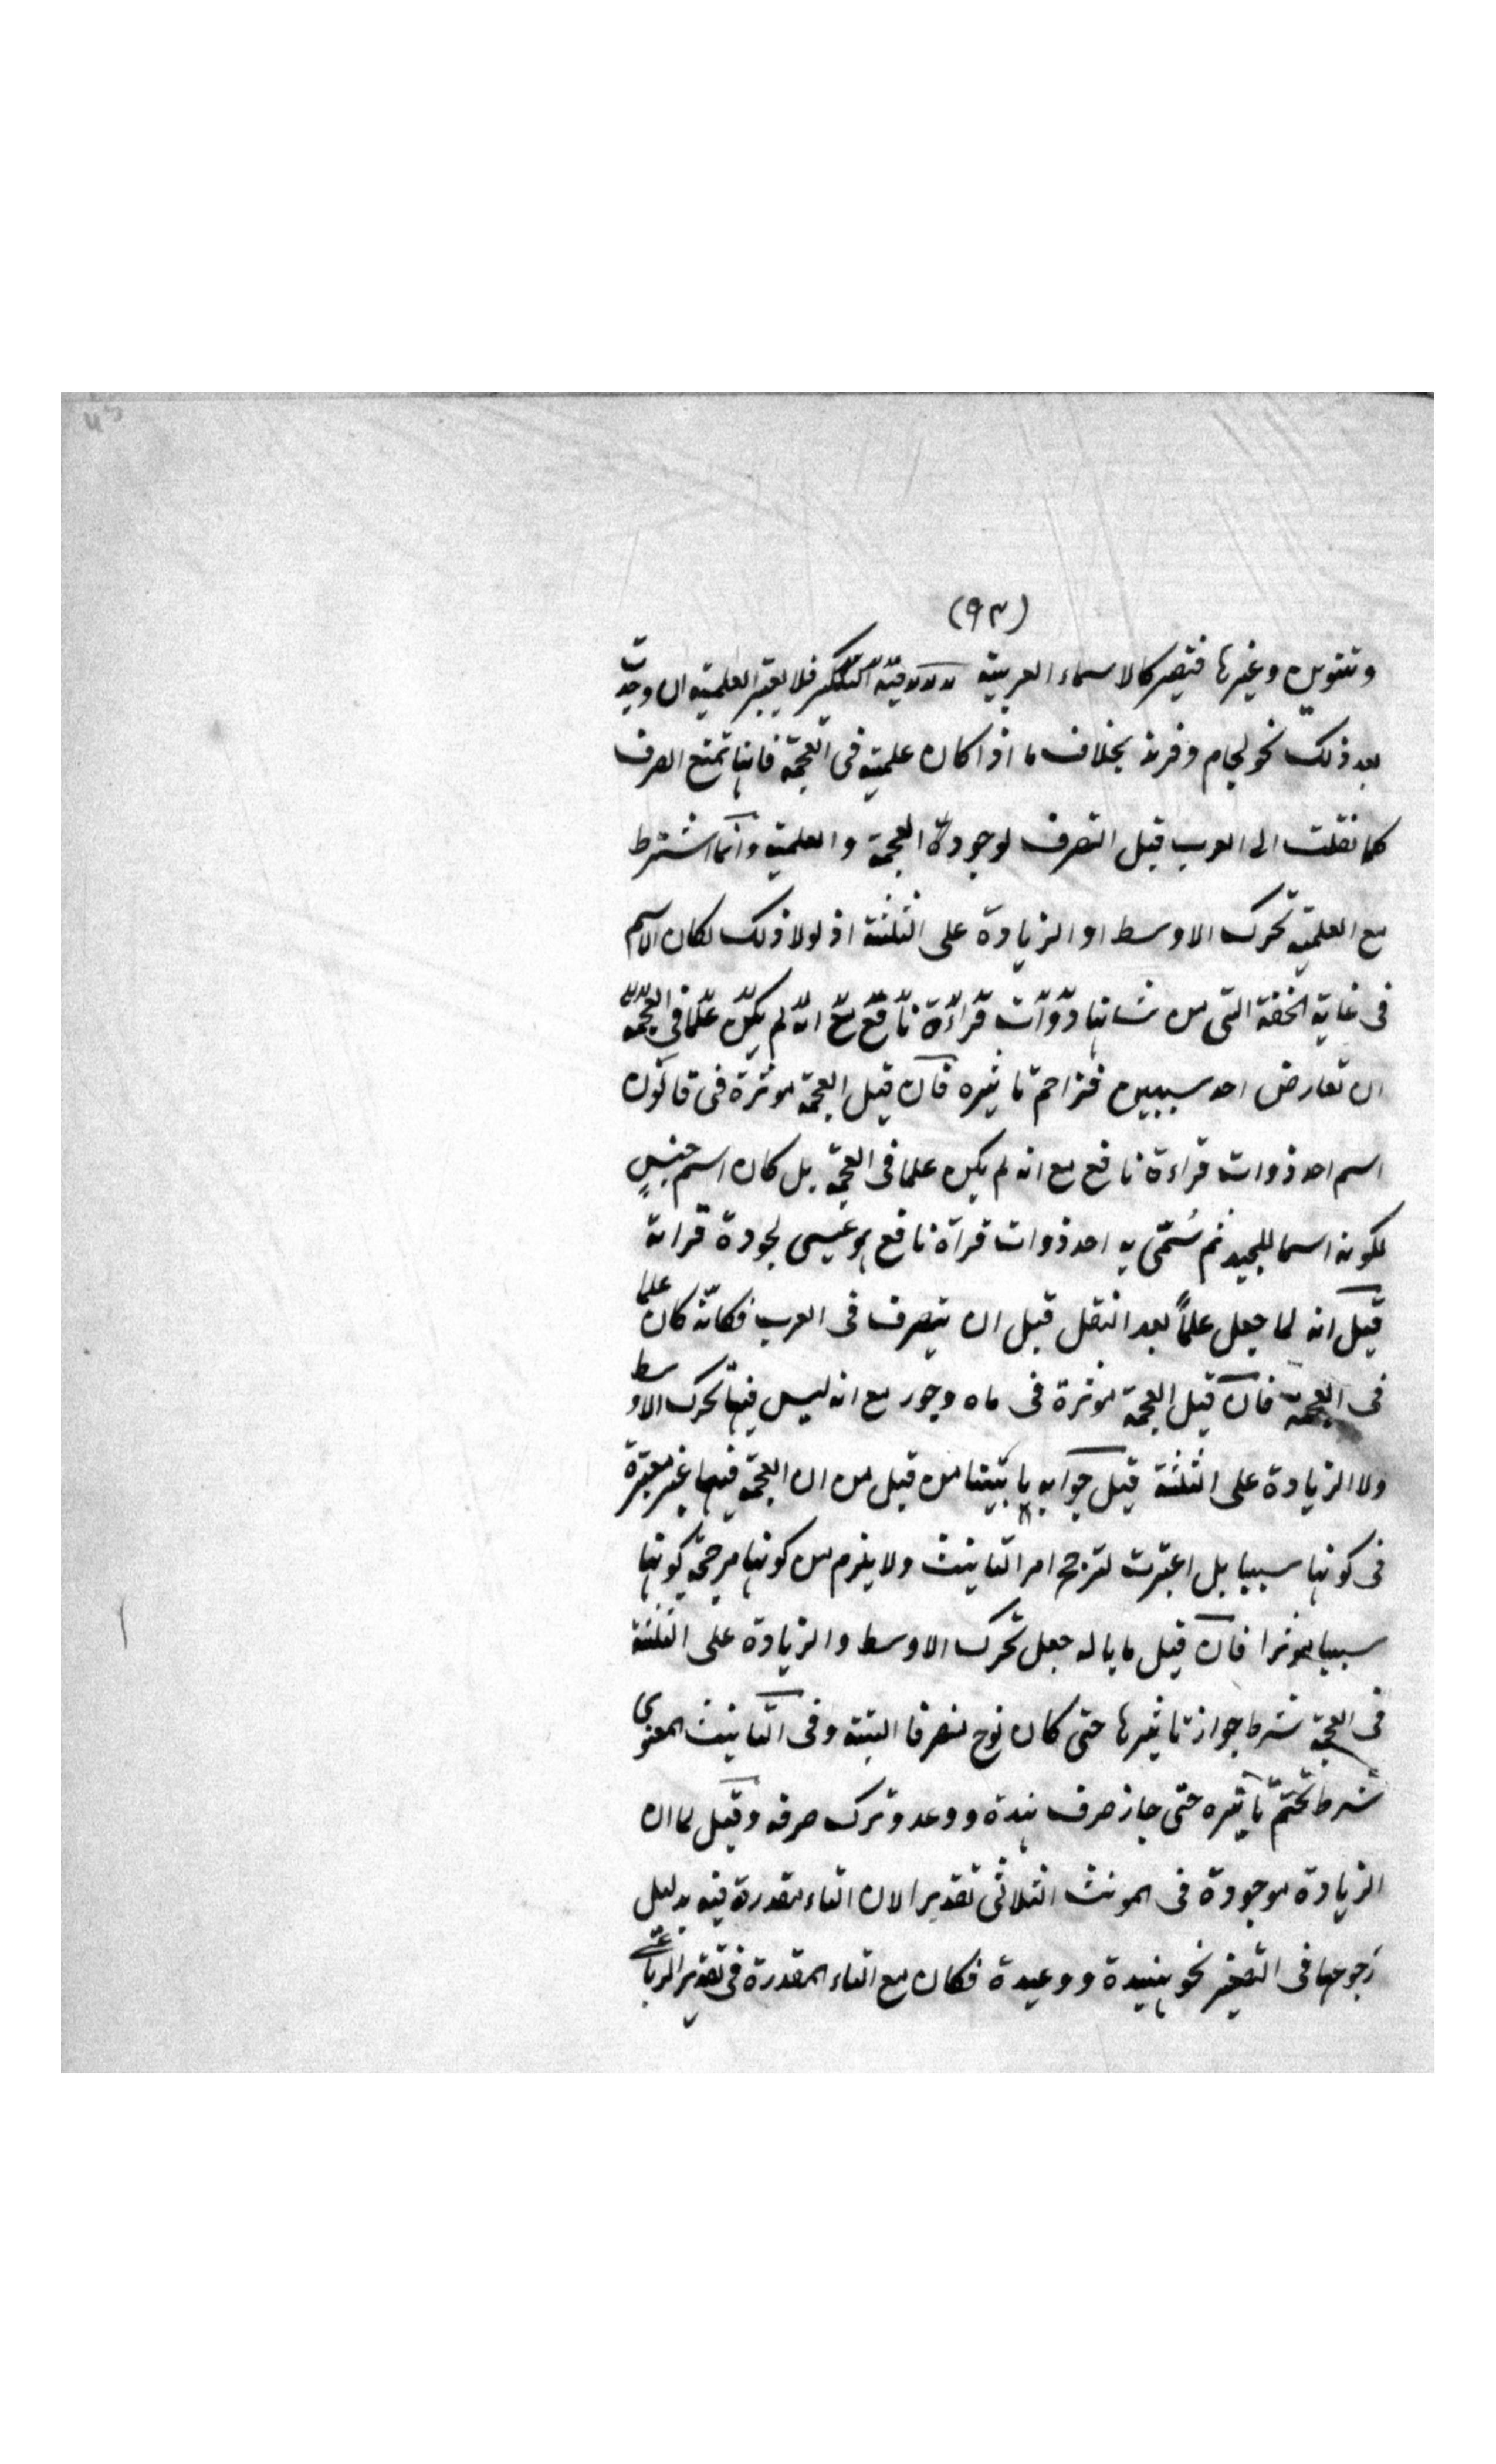 (٩٣)
وتنوين وغيرها فتصير كالاسماء العربية التنكير فلا يعتبر العلمية ان وجدت
بعد ذلك نحو لجام وفرند بخلاف ما اذا كان علمية فى العجمة فانها تمنع الصرف
كما نقلت الى العرب قبل التصرف لوجود العجمة والعلمية وانما اشترط
مع العلمية تحرك الاوسط او الزيادة على الثلثة اذ لولا ذلك لكان الاسم
فى غاية الخفة التى من شانها ذوات قراءة نافع مع انه لم يكن علما فى العجمة
ان تعارض احد سببين فتزاحم تاثيره فان قيل العجمة موثرة فى قالون
اسم احد ذوات قراءة نافع مع انه لم يكن علما فى العجمة بل كان اسم جنس
لكونه اسما للجيد ثم سُمّى به احد ذوات قرآة نافع هو عيسى لجودة قراته
قيل انه لما جعل علماً بعد النقل قبل ان يتصرف فى العرب فكانّه كان علما
فى العجمة فان قيل العجمة موثرة فى ماه وجور مع انه ليس فيها تحرك الاوسط
ولا الزيادة على الثلثة قيل جوابه ما بيّنا من قبل من ان العجمة فيهما غير معتبرة
فى كونها سببا بل اعتبرت لترجح امر التانيث ولا يلزم من كونها مرجحة كونها
سببا موثرا فان قيل ما باله جعل تحرك الاوسط والزيادة على الثلثة
فى العجمة شرط جواز تاثيرها حتى كان نوح منصرفا البتة وفى التانيث المعنوى
شرط تحتّم تاثيره حتى جاز صرف هندة ووعد وترك صرفه وقيل لما ان
الزيادة موجودة فى المونث الثلاثى تقديرا لان التاء مقدرة فيه بدليل
رجوعها فى التصغير نحو هنيدة ووعيدة فكان مع التاء المقدرة فى تقدير الرباعى